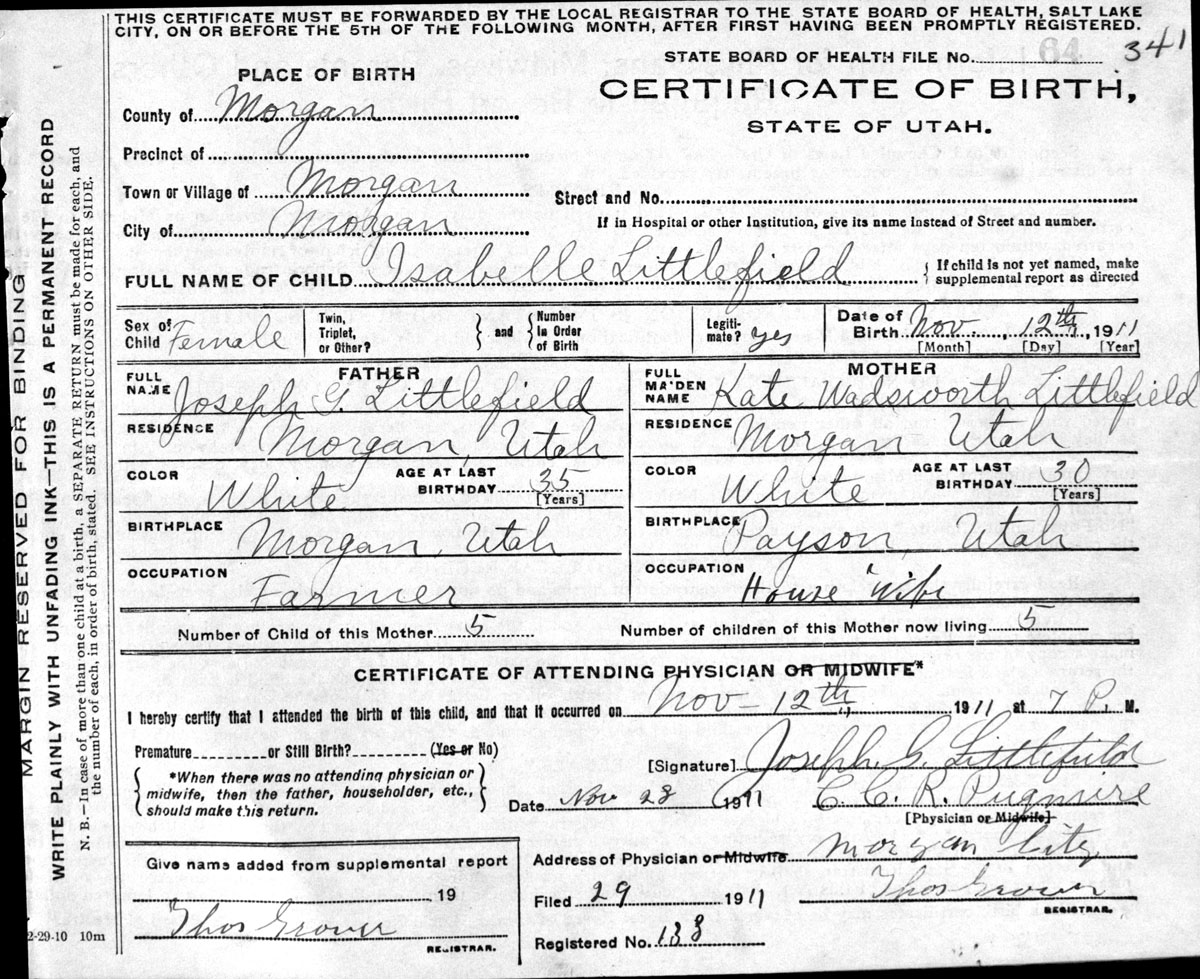 THIS CERTIFICATE MUST BE FORWARDED BY THE LOCAL REGISTRAR TO THE STATE BOARD OF HEALTH, SALT LAKE
CITY, ON OR BEFORE THE 5TH OF THE FOLLOWING MONTH, AFTER FIRST HAVING BEEN PROMPTLY REGISTERED.
341
STATE BOARD OF HEALTH FILE No. 64
PLACE OF BIRTH
CERTIFICATE OF BIRTH,
STATE OF UTAH.
County of Morgan
Precinct of
Town or Village of Morgan
Street and No.
City of Morgan
If in Hospital or other Institution, give its name instead of Street and number.
FULL NAME OF CHILD Isabelle Littlefield { If child is not yet named, make
supplemental report as directed
Sex of Child Female
Twin, Triplet, or Other?
{ and } Number in Order of Birth
Legiti-mate? yes
Date of Birth Nov 12th, 1911
[Month] [Day] [Year]
FATHER
FULL NAME Joseph G. Littlefield
MOTHER
FULL MAIDEN NAME Kate Wadsworth Littlefield
RESIDENCE Morgan, Utah
RESIDENCE Morgan Utah
COLOR White AGE AT LAST BIRTHDAY 35 [Years]
COLOR White AGE AT LAST BIRTHDAY 30 [Years]
BIRTHPLACE Morgan, Utah
BIRTHPLACE Payson, Utah
OCCUPATION Farmer
OCCUPATION House Wife
Number of Child of this Mother 5
Number of children of this Mother now living 5
CERTIFICATE OF ATTENDING PHYSICIAN OR MIDWIFE*
I hereby certify that I attended the birth of this child, and that it occurred on Nov - 12th, 1911 at 7 P. M.
Premature or Still Birth? (Yes or No)
{ *When there was no attending physician or
midwife, then the father, householder, etc.,
should make this return. }
[Signature] Joseph G. Littlefield
Date Nov 28 1911 C. C. R. Pugmire
[Physician or Midwife]
Give name added from supplemental report
19
Thos Grover
REGISTRAR.
Address of Physician or Midwife Morgan City
Filed 29 1911 Thos Grover
REGISTRAR.
Registered No. 133
2-29-10 10m
MARGIN RESERVED FOR BINDING
WRITE PLAINLY WITH UNFADING INK—THIS IS A PERMANENT RECORD
N. B.—In case of more than one child at a birth, a SEPARATE RETURN must be made for each, and
the number of each, in order of birth, stated. SEE INSTRUCTIONS ON OTHER SIDE.